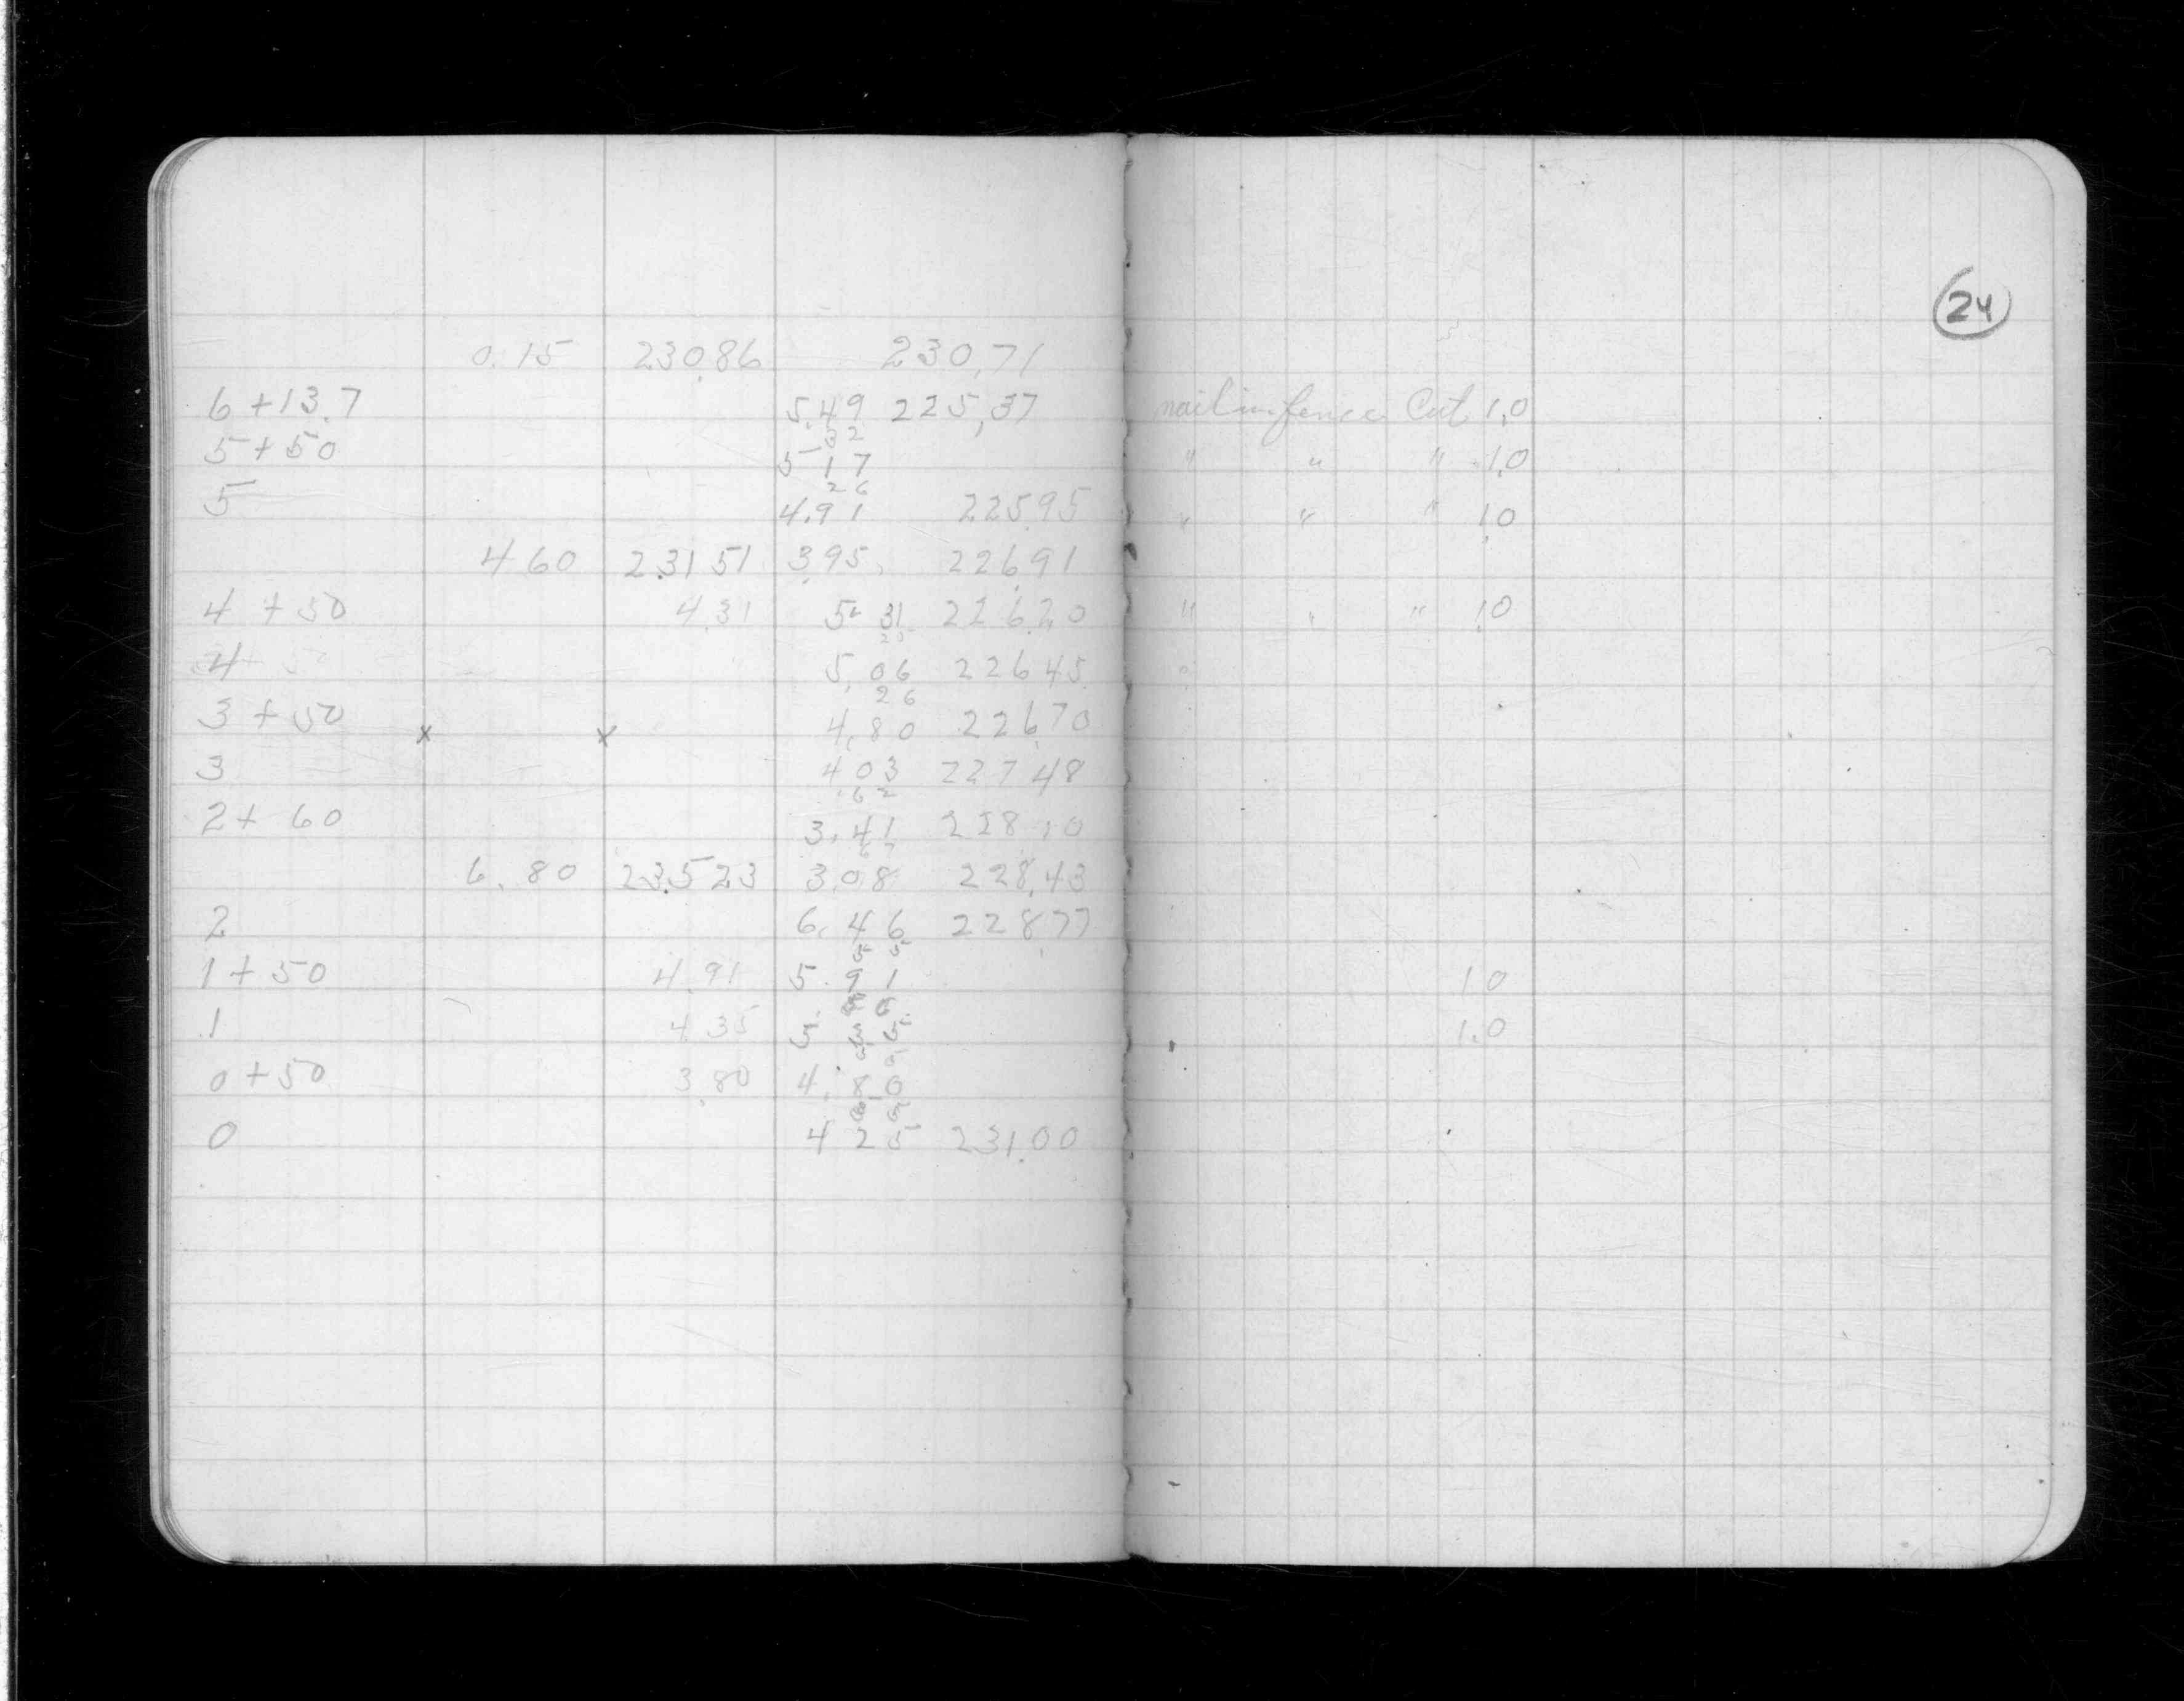 24
0.15 230.86 230,71
6 + 13.7 5.49 225,37 nail in fence Cut 1,0
32
5 + 50 5 17 " " " 1.0
26
5 4.91 225.95 " " " 1.0
4 60 231 51 3.95 226.91
4 + 50 4.31 5 31 226.20 " " " 1.0
25
4 5.06 226 45 "
26
3 + 50 x x 4.80 226.70
3 4 03 227 48
.62
2 + 60 3.41 228 10
6.80 235 23 3.08 228.43
2 6.46 228.77
55
1 + 50 4.91 5.91 1.0
56
1 4.35 5.35 1.0
0 + 50 3.80 4.80
0 4 25 231.00